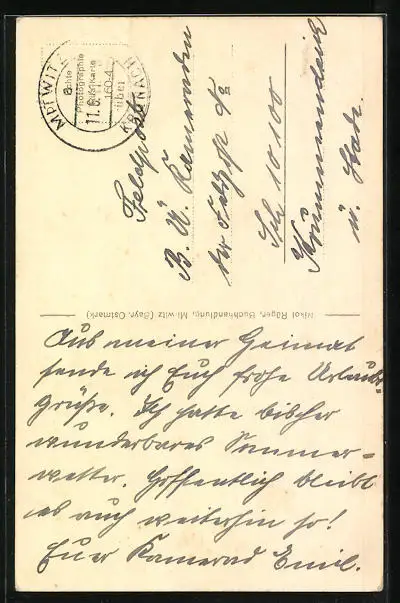 MITWITZ
über
KRONACH
11.6.
16-0-4
Echte
Photographie
Feldpost
B. U. Kameraden
der
10100
u. Stab.
Nikol Räger, Buchhandlung, Mitwitz (Bayr. Ostmark)
Aus meiner Heimat
sende ich Euch frohe Urlaubs-
grüße. Ich hatte bisher
wunderbares Sommer-
wetter. Hoffentlich bleibt
es auch weiterhin so!
Euer Kamerad Emil.